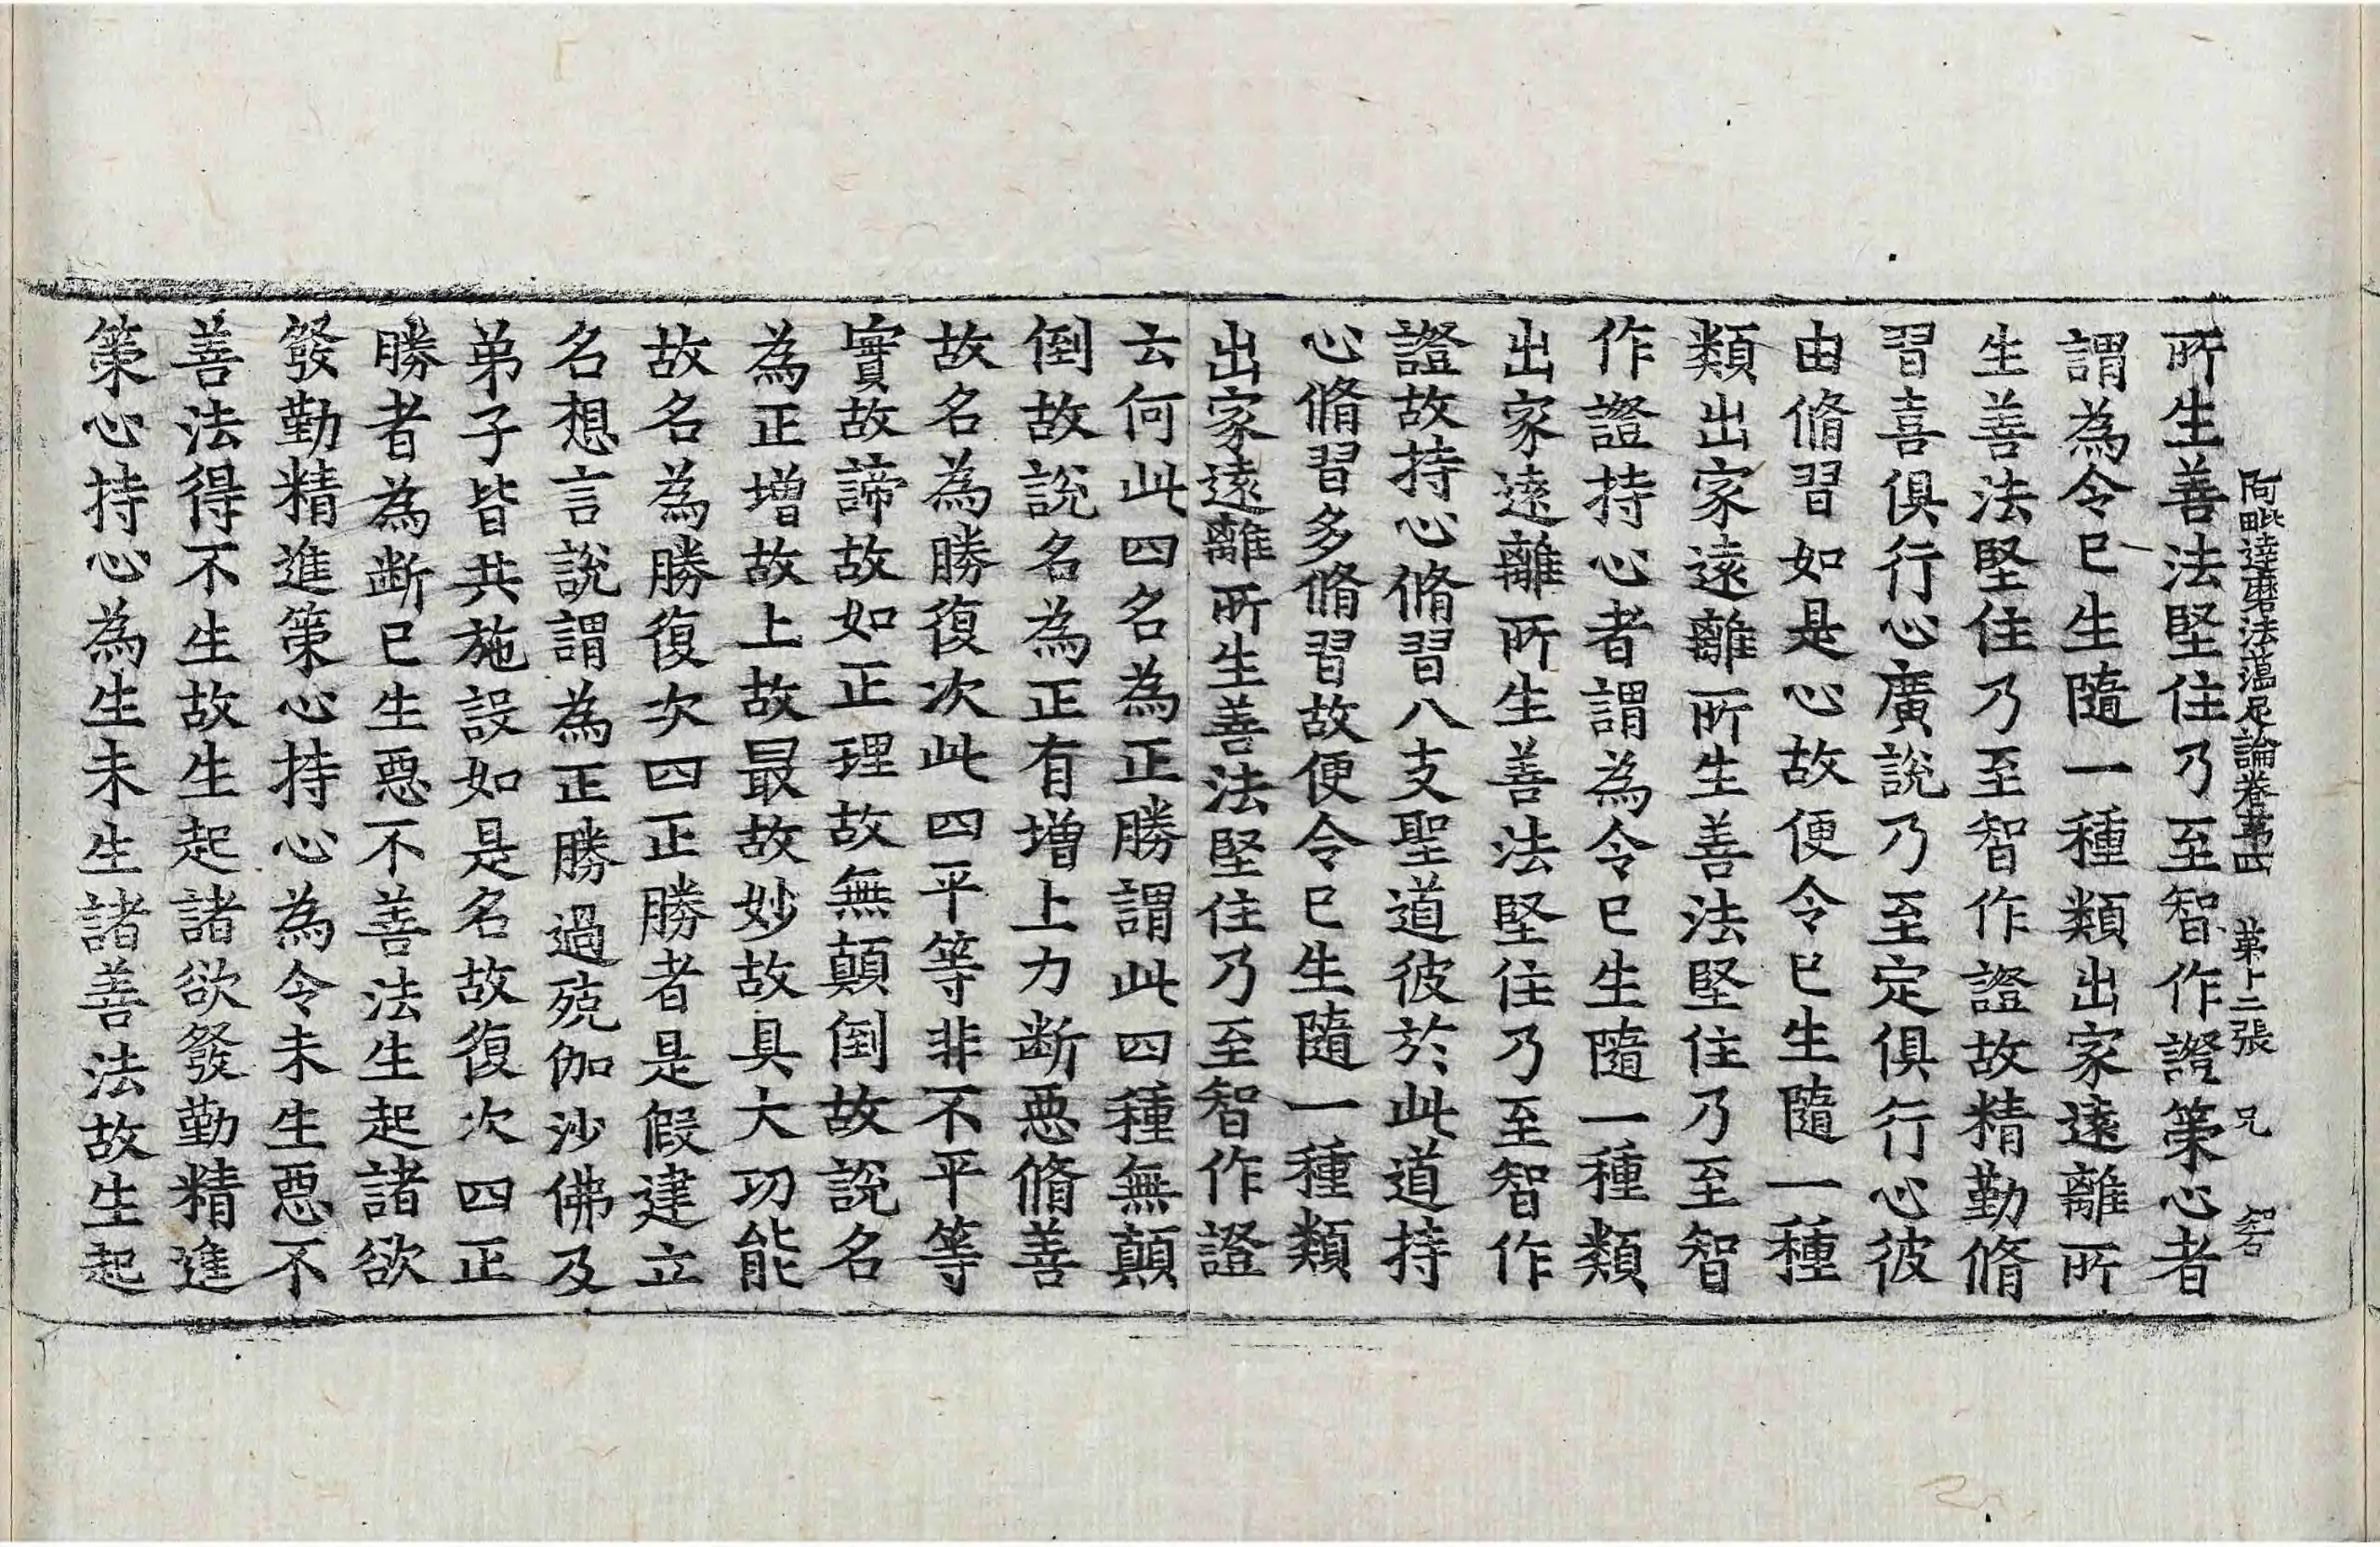 阿毗達磨法蘊足論卷第四　第十二張　兄　智
所生善法堅住乃至智作證策心者
謂為令已生隨一種類出家遠離所
生善法堅住乃至智作證故精勤脩
習喜俱行心廣說乃至定俱行心彼
由脩習如是心故便令已生隨一種
類出家遠離所生善法堅住乃至智
作證持心者謂為令已生隨一種類
出家遠離所生善法堅住乃至智作
證故持心脩習八支聖道彼於此道持
心脩習多脩習故便令已生隨一種類
出家遠離所生善法堅住乃至智作證
云何此四名為正勝謂此四種無顛
倒故說名為正有增上力断惡脩善
故名為勝復次此四平等非不平等
實故諦故如正理故無顛倒故說名
為正增故上故最故妙故具大功能
故名為勝復次四正勝者是假建立
名想言說謂為正勝過殑伽沙佛及
弟子皆共施設如是名故復次四正
勝者為断已生惡不善法生起諸欲
發勤精進策心持心為令未生惡不
善法得不生故生起諸欲發勤精進
策心持心為生未生諸善法故生起